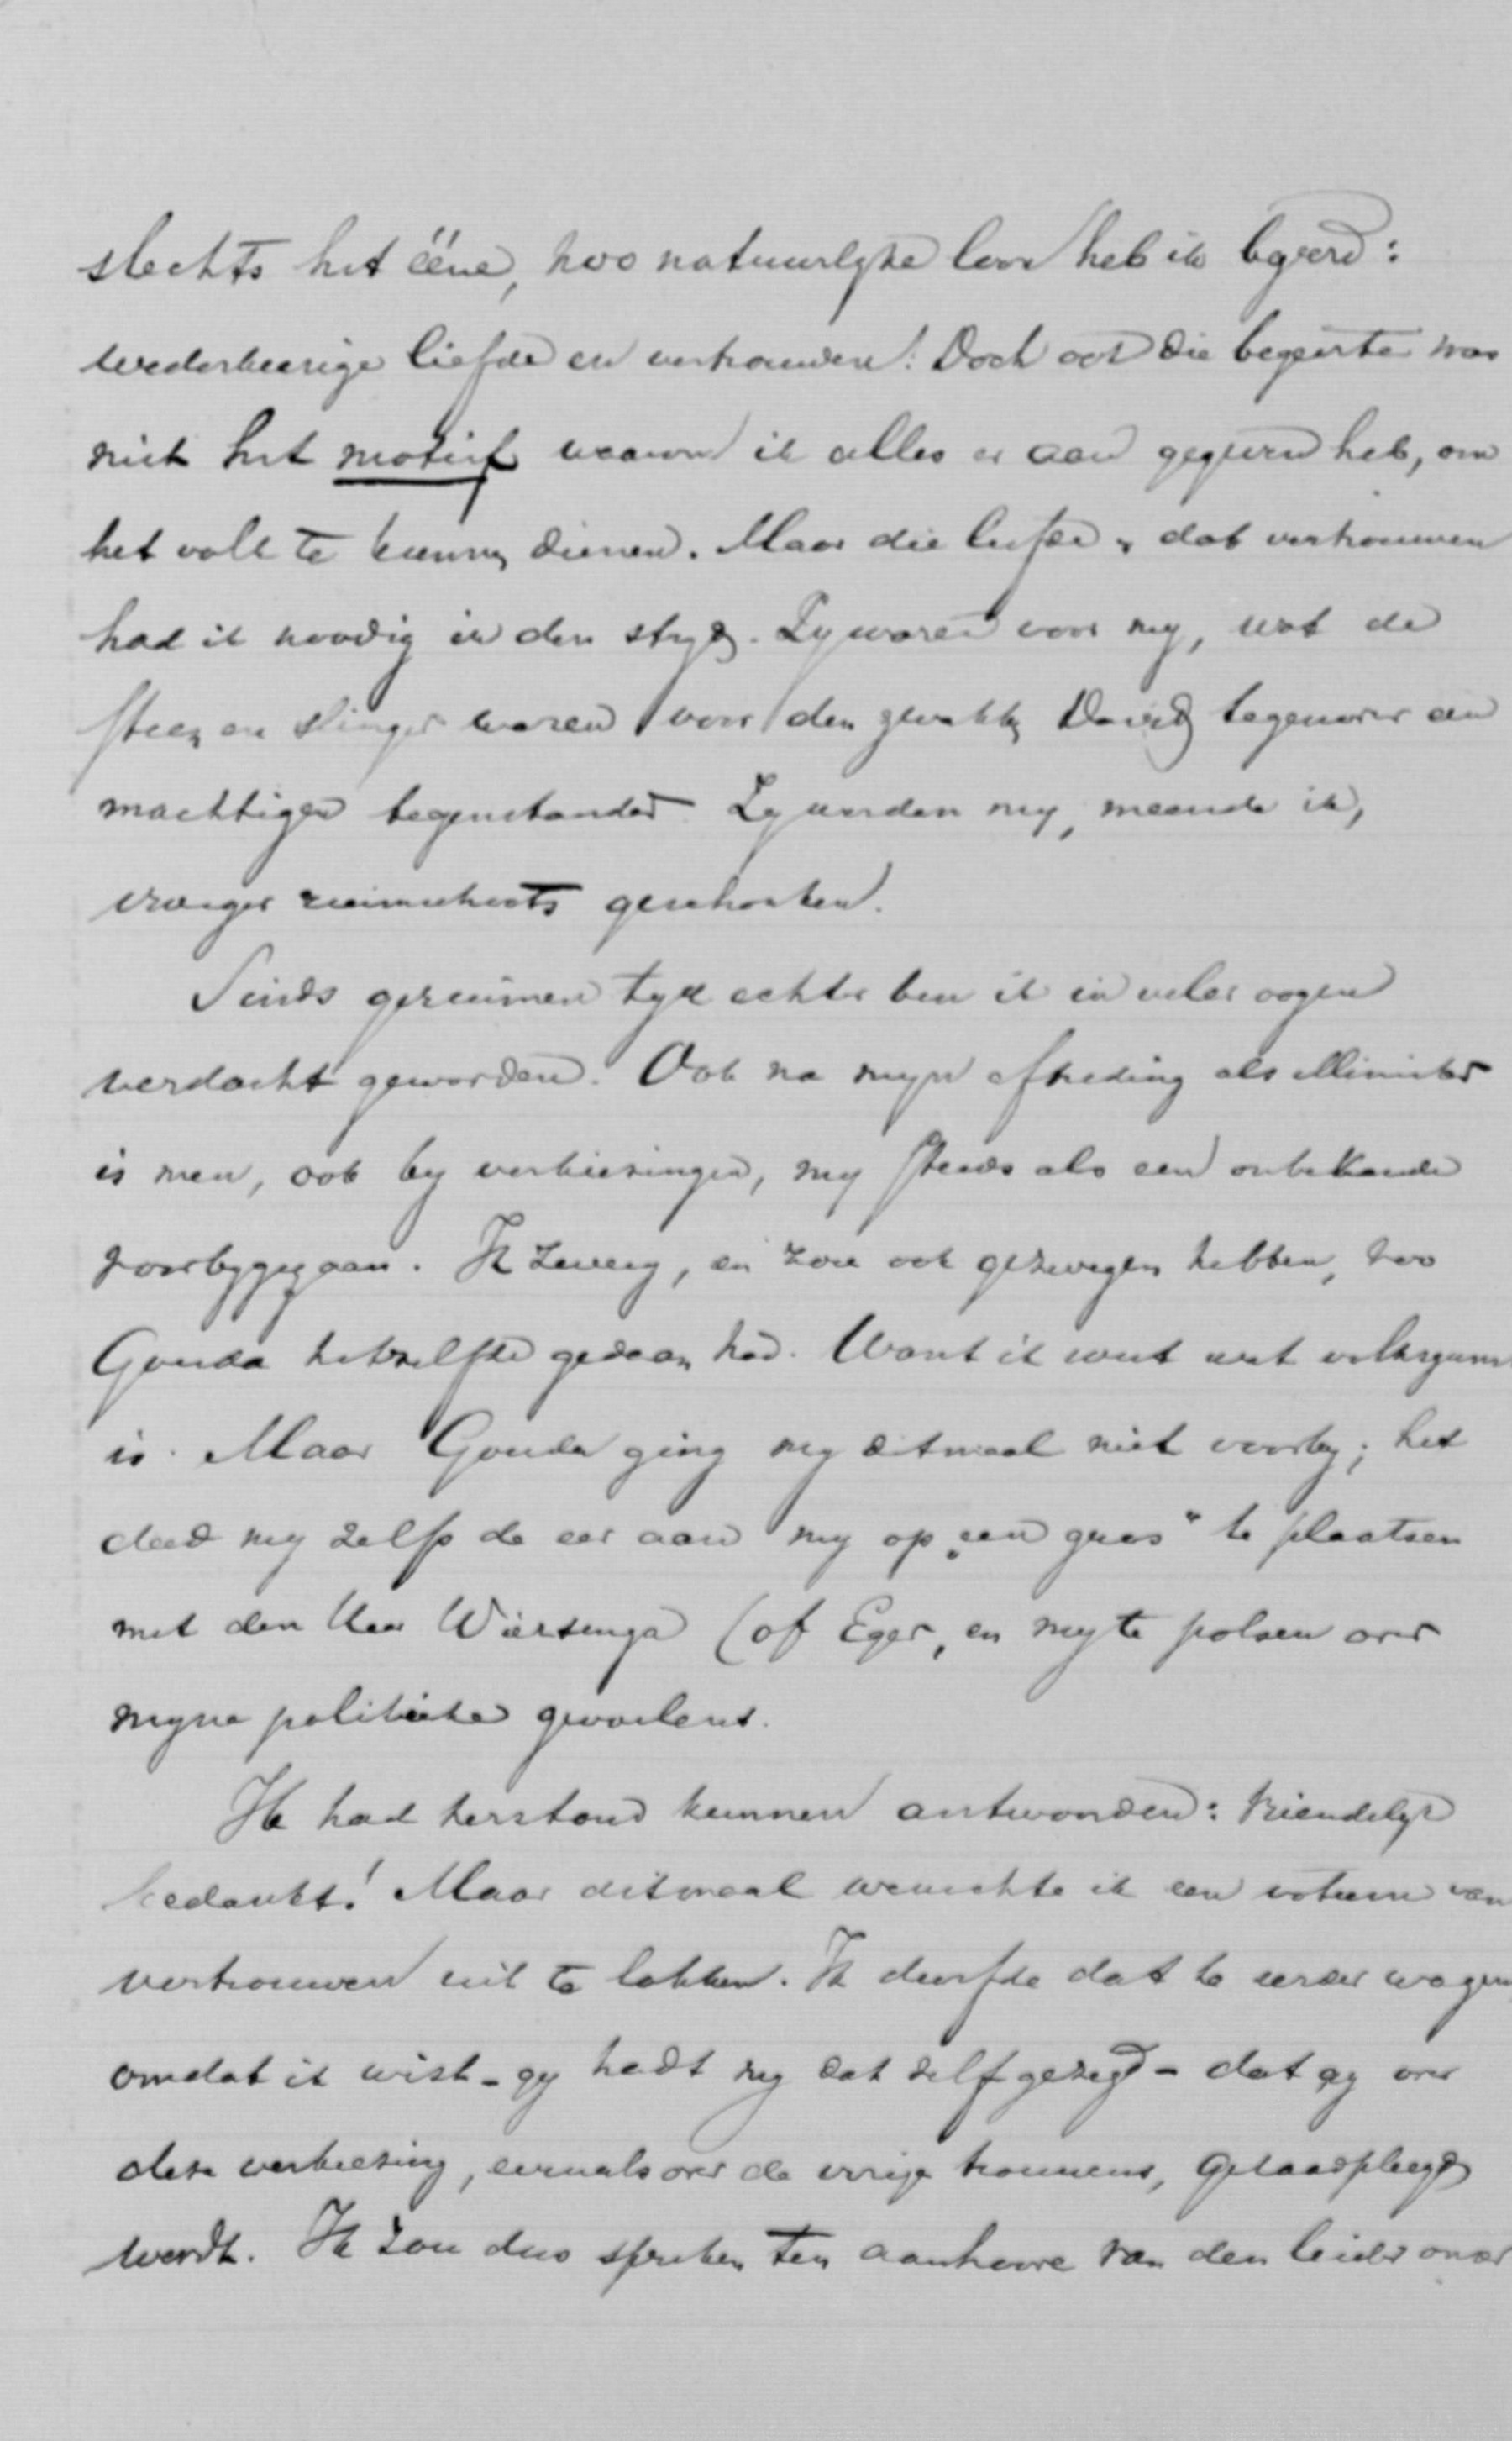 slechts het ééne, zoo natuurlyke loon heb ik begeerd:
wederkeerige liefde en vertrouwen! Doch ook die begeerte was
niet het motief waarom ik alles er aan gegeven heb, om
het volk te kunnen dienen. Maar die liefde en dat vertrouwen
had ik noodig in den stryd. Zy waren voor my, wat de
steen en slinger waren voor den zwakken David tegenover een
machtigen tegenstander. Zy werden my, meende ik,
vroeger ruimschoots geschonken.
Sinds geruimen tyd echter ben ik in veler oogen
verdacht geworden. Ook na myn aftreding als Minister
is men, ook by verkiezingen, my steeds als een onbekende
voorbygegaan. Ik zweeg, en zou ook gezwegen hebben, zoo
Gouda hetzelfde gedaan had. Want ik weet wat volksgunst
is. Maar Gouda ging my ditmaal niet voorby; het
deed my zelfs de eer aan my op „een gros" te plaatsen
met den Heer Wiersenga (of Eger, en my te polsen over
myne politieke gevoelens.
Ik had terstond kunnen antwoorden: vriendelyk
bedankt! Maar ditmaal wenschte ik een votum van
vertrouwen uit te lokken. Ik durfde dat te eerder wagen
omdat ik wist - gy hadt my dat zelf gezegd - dat gy over
deze verkiezing, evenals over de overige trouwens, geraadpleegd
werdt. Ik zou dus spreken ten aanhoore van den leider onzer